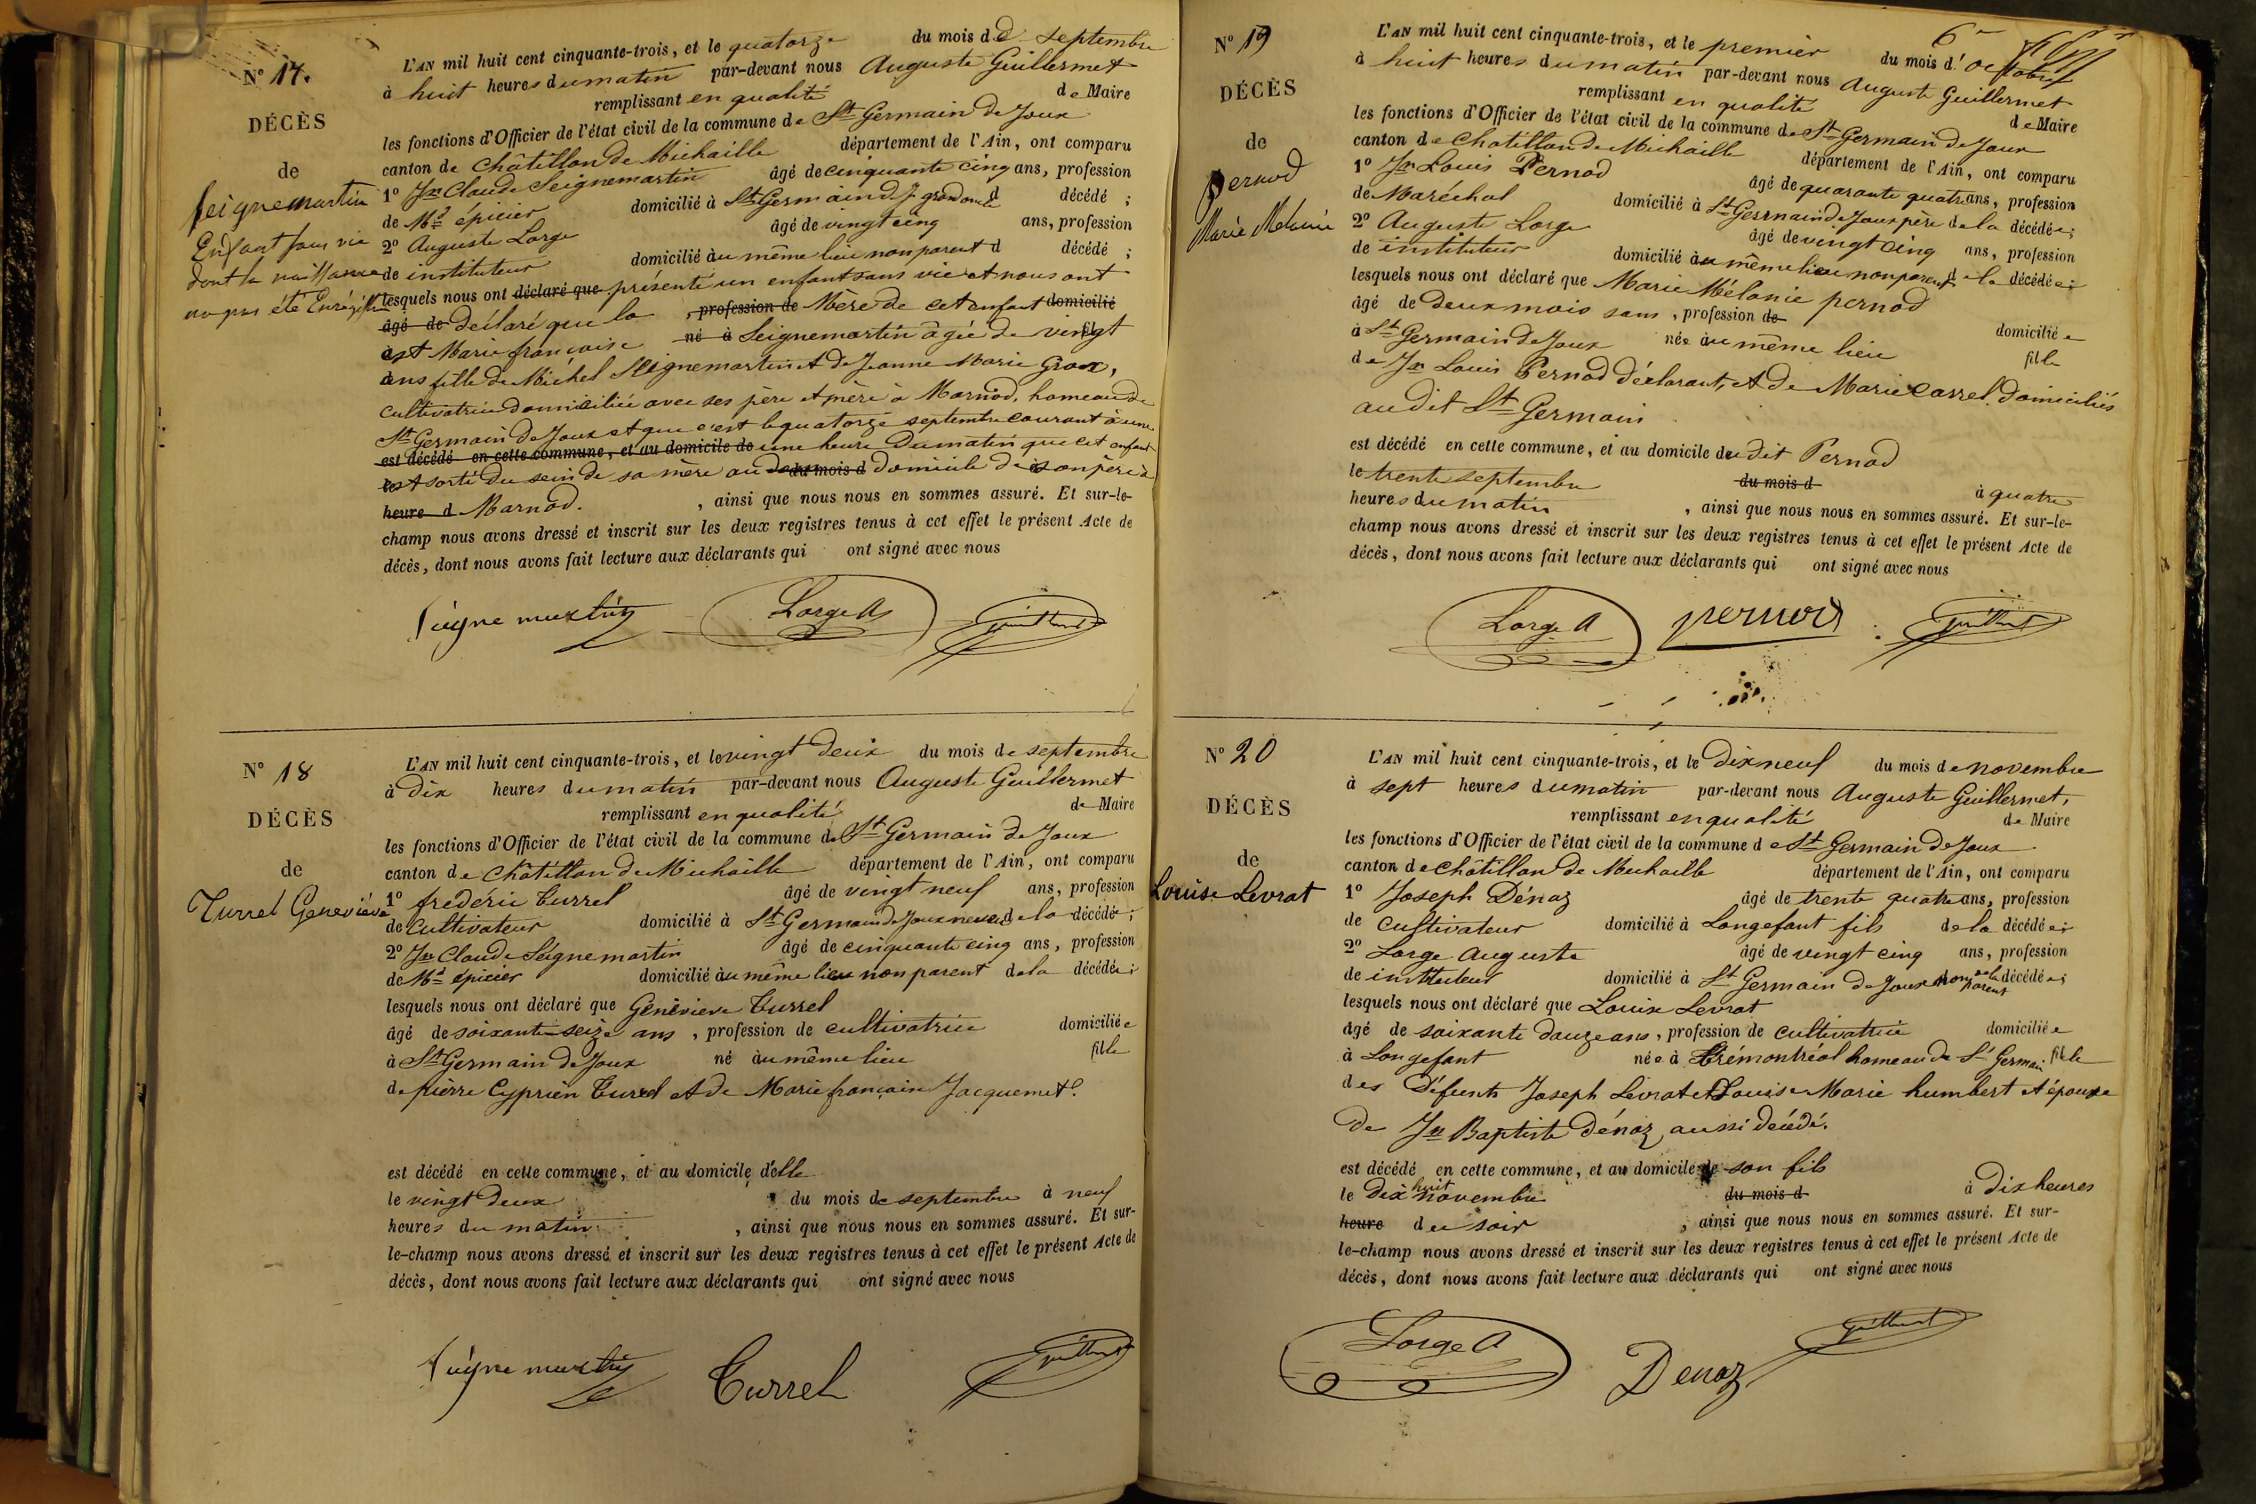 N° 17.
DÉCÈS
de
Seignemartin
Enfant sans vie
dont la naissance
n'a pas été Enrégistrée
L'AN mil huit cent cinquante-trois, et le quatorze du mois de septembre
à huit heures du matin par-devant nous Auguste Guillermet
remplissant en qualité de Maire
les fonctions d'Officier de l'état civil de la commune de St Germain de Joux
canton de Châtillon de Michaille département de l'Ain, ont comparu
1° Jn Claude Seignemartin âgé de cinquante cinq ans, profession
de Md épicier domicilié à St Germain d. J. grand oncle d décédé ;
2° Auguste Lorge âgé de vingt cinq ans, profession
de instituteur domicilié au même lieu non parent d décédé ;
lesquels nous ont déclaré que présenté un enfant sans vie et nous ont
âgé de déclaré que la , profession de Mère de cet enfant domicilié
est Marie françoise né à Seignemartin âgée de vingt
ans fille de Michel Seignemartin et de Jeanne Marie Gros,
cultivatrice domiciliée avec ses père et mère à Marnod, hameau de
St Germain de Joux et que c'est le quatorze septembre courant à une
est décédé en cette commune, et au domicile de une heure du matin que cet enfant
est sorti du sein de sa mère au du mois d domicile de son père à
heure d Marnod. , ainsi que nous nous en sommes assuré. Et sur-le-
champ nous avons dressé et inscrit sur les deux registres tenus à cet effet le présent Acte de
décès, dont nous avons fait lecture aux déclarants qui ont signé avec nous
Seigne martin Lorge A Guillermet
N° 18
DÉCÈS
de
Turrel Geneviève
L'AN mil huit cent cinquante-trois, et le vingt deux du mois de septembre
à dix heures du matin par-devant nous Auguste Guillermet
remplissant en qualité de Maire
les fonctions d'Officier de l'état civil de la commune de St Germain de Joux
canton de Châtillon de Michaille département de l'Ain, ont comparu
1° frédéric Turrel âgé de vingt neuf ans, profession
de cultivateur domicilié à St Germain de Joux neveu de la décédée ;
2° Jn Claude Seignemartin âgé de cinquante cinq ans, profession
de Md épicier domicilié au même lieu non parent de la décédée ;
lesquels nous ont déclaré que Geneviève Turrel
âgé de soixante-seize ans , profession de cultivatrice domiciliée
à St Germain de Joux né au même lieu fille
de pierre Cyprien Turrel et de Marie françoise Jacquemet.
est décédé en cette commune, et au domicile d'elle
le vingt deux du mois de septembre à neuf
heures du matin , ainsi que nous nous en sommes assuré. Et sur-
le-champ nous avons dressé et inscrit sur les deux registres tenus à cet effet le présent Acte de
décès, dont nous avons fait lecture aux déclarants qui ont signé avec nous
Seigne martin Turrel Guillermet
N° 19
DÉCÈS
de
Pernod
Marie Mélanie
L'AN mil huit cent cinquante-trois, et le premier du mois d'octobre
à huit heures du matin par-devant nous Auguste Guillermet
remplissant en qualité de Maire
les fonctions d'Officier de l'état civil de la commune de St Germain de Joux
canton de Chatillon de Michaille département de l'Ain, ont comparu
1° Jn Louis Pernod âgé de quarante quatre ans, profession
de Maréchal domicilié à St Germain de Joux père de la décédée ;
2° Auguste Lorge âgé de vingt cinq ans, profession
de instituteur domicilié au même lieu non parent de la décédée ;
lesquels nous ont déclaré que Marie Mélanie pernod
âgé de deux mois sans , profession de domiciliée
à St Germain de Joux née au même lieu fille
de Jn Louis Pernod déclarant, et de Marie Carrel domiciliés
au dit St Germain
est décédé en cette commune, et au domicile du dit Pernod
le trente septembre du mois d à quatre
heures du matin , ainsi que nous nous en sommes assuré. Et sur-le-
champ nous avons dressé et inscrit sur les deux registres tenus à cet effet le présent Acte de
décès, dont nous avons fait lecture aux déclarants qui ont signé avec nous
Lorge A pernod Guillermet
N° 20
DÉCÈS
de
Louise Levrat
L'AN mil huit cent cinquante-trois, et le dix neuf du mois de novembre
à sept heures du matin par-devant nous Auguste Guillermet,
remplissant en qualité de Maire
les fonctions d'Officier de l'état civil de la commune de St Germain de Joux
canton de Châtillon de Michaille département de l'Ain, ont comparu
1° Joseph Dénaz âgé de trente quatre ans, profession
de cultivateur domicilié à Longefant fils de la décédée ;
2° Lorge Auguste âgé de vingt cinq ans, profession
de instituteur domicilié à St Germain de Joux non parent de la décédée ;
lesquels nous ont déclaré que Louise Levrat
âgé de soixante douze ans, profession de cultivatrice domiciliée
à Longefant née à Trémontréal hameau de St Germain fille
des Défunts Joseph Levrat et Louise Marie humbert et épouse
de Jn Baptiste Dénaz, aussi décédé.
est décédé en cette commune, et au domicile de son fils
le dix huit novembre du mois d à dix heures
heure du soir , ainsi que nous nous en sommes assuré. Et sur-
le-champ nous avons dressé et inscrit sur les deux registres tenus à cet effet le présent Acte de
décès, dont nous avons fait lecture aux déclarants qui ont signé avec nous
Lorge A Denaz Guillermet